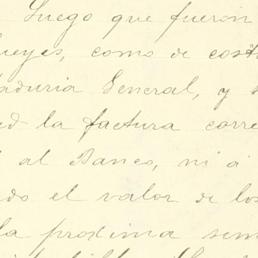 Luego que fueron
ueyes, como de cost
aduria General, y
ed la factura corre
al Banco, ni á
do el valor de los
la proxima sem